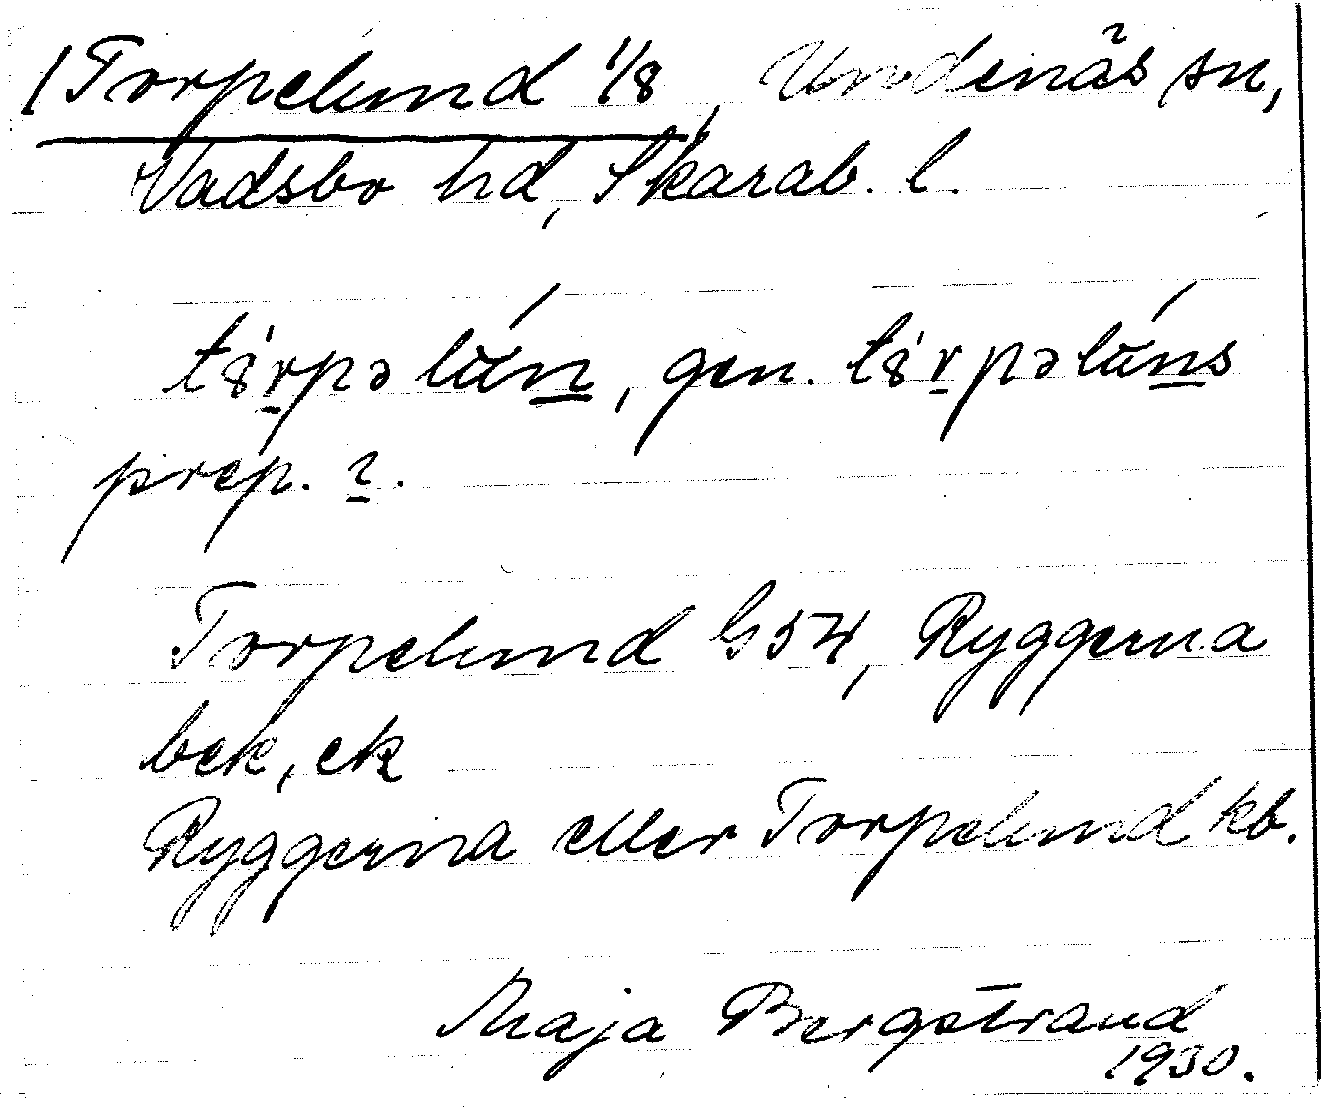 /Torpelund 1/8, Undenäs sn,
Vadsbo hd, Skarab. l.
gen.
prep. ɩ.
Torpelund G54, Ryggerna
bek, ek
Ryggerna eller Torpelund kb.
Maja Bergstrand
1930.